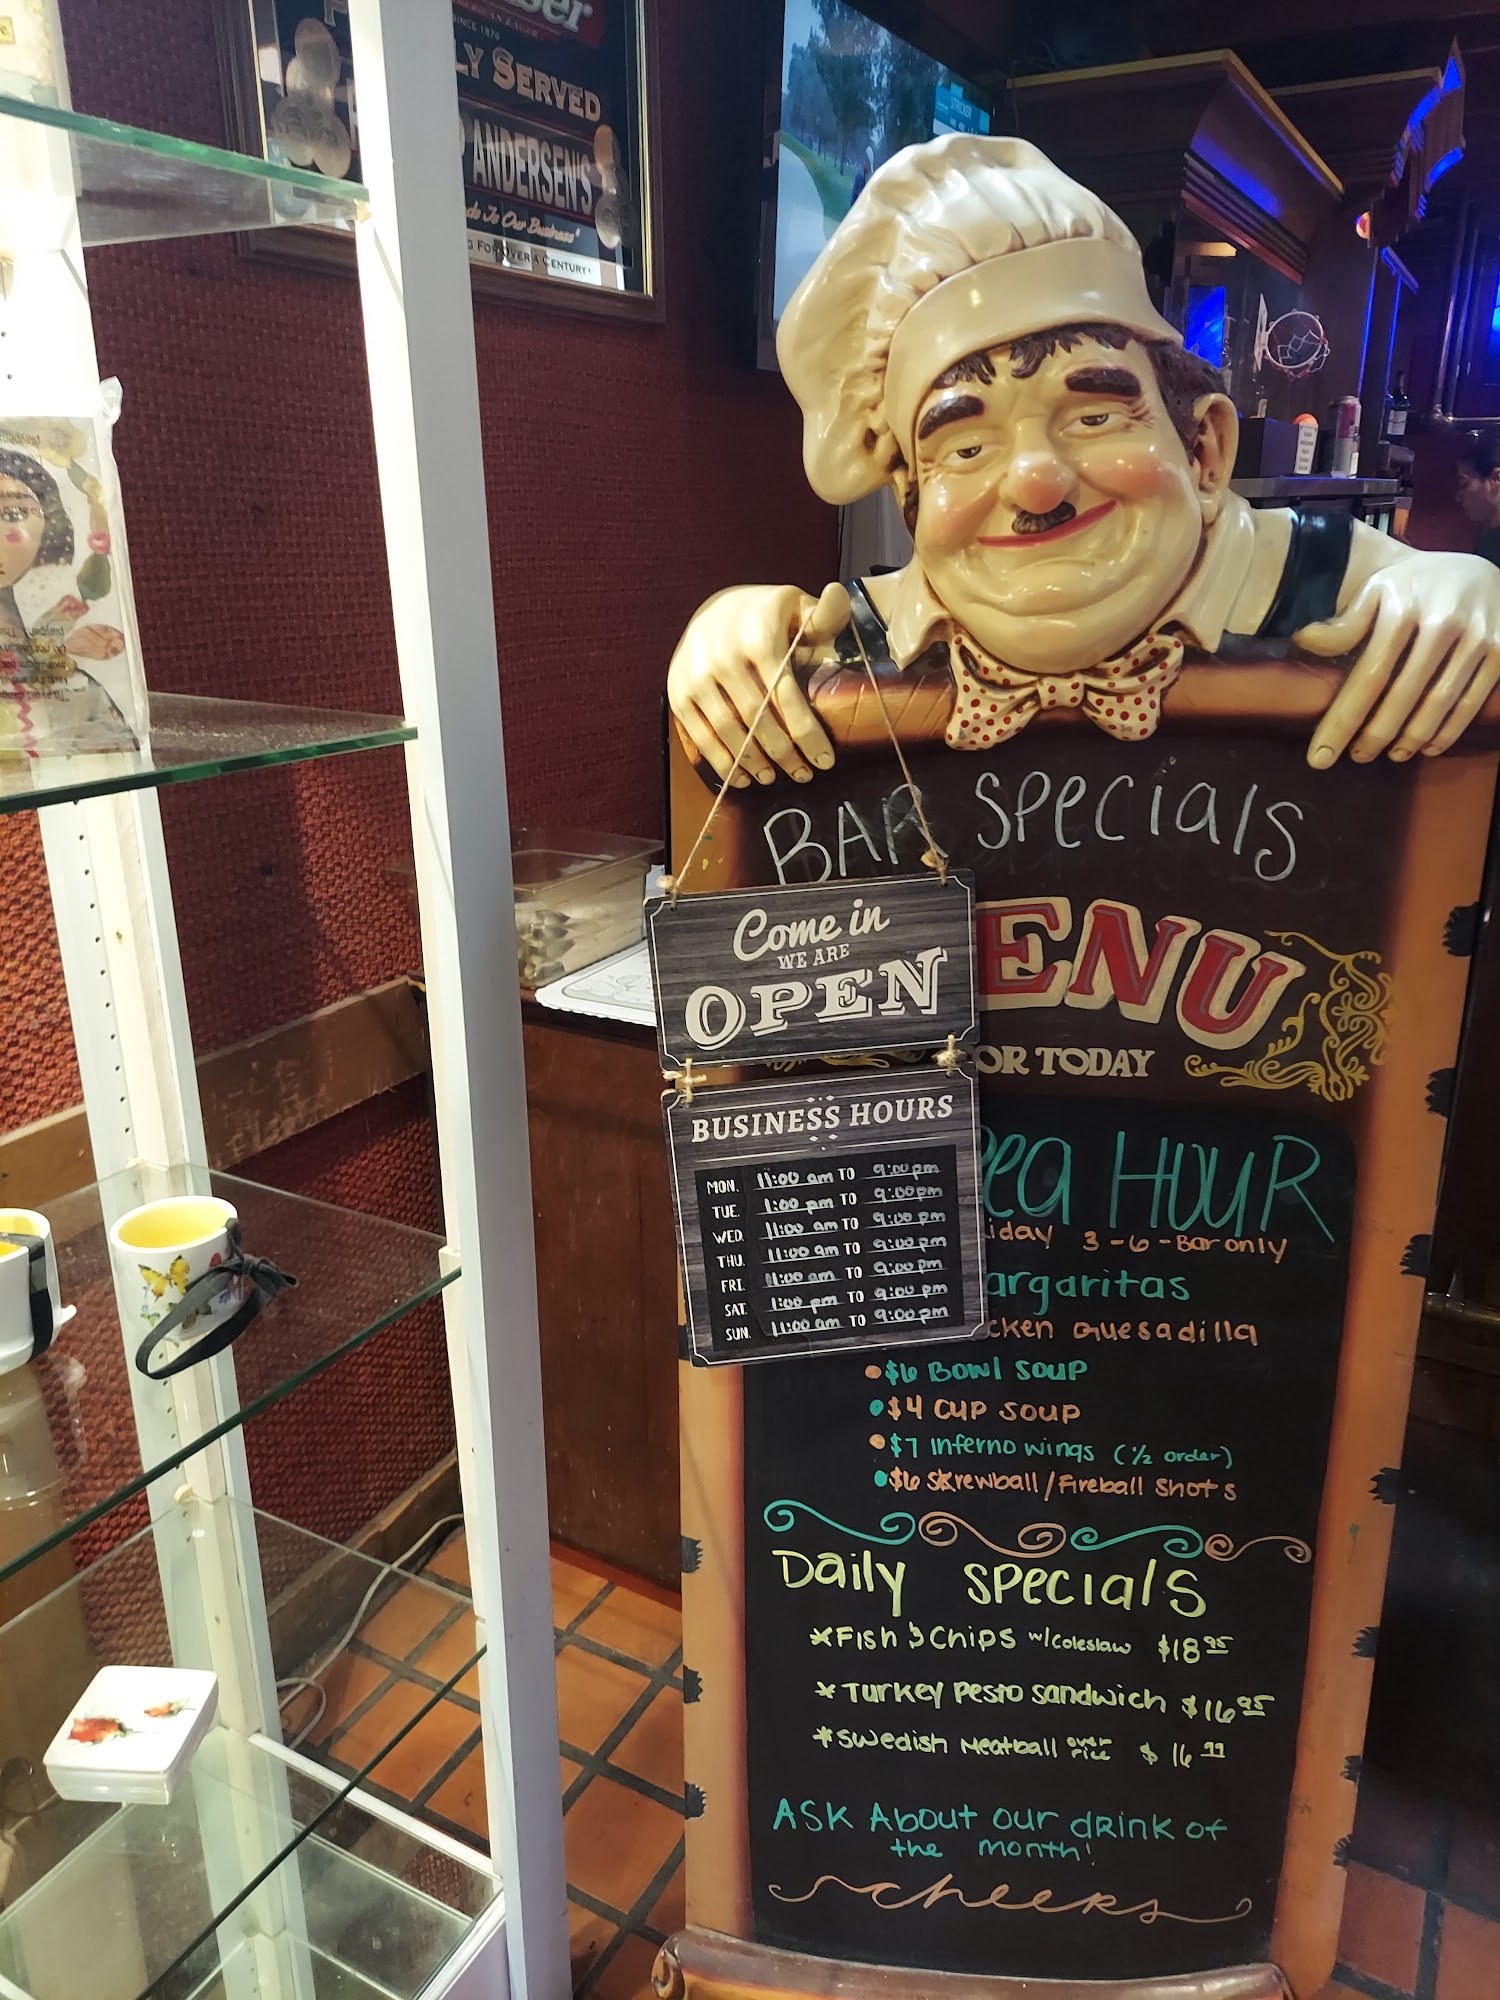 SINCE 1876
LY SERVED
ANDERSEN'S
To Our Business"
G FOR OVER A CENTURY
STRICKER
BAR Specials
Come in
WE ARE
OPEN
ENU
OR TODAY
BUSINESS HOURS
MON. 11:00 am TO 9:00 pm
TUE. 1:00 pm TO 9:00 pm
WED. 11:00 am TO 9:00 pm
THU. 11:00 am TO 9:00 pm
FRI. 11:00 am TO 9:00 pm
SAT. 1:00 pm TO 9:00 pm
SUN. 11:00 am TO 9:00 pm
Pea HOUR
iday 3-6-Bar only
argaritas
cken Quesadilla
$6 Bowl Soup
$4 cup soup
$7 Inferno wings (1/2 order)
$6 Skrewball/Fireball Shots
Daily Specials
*Fish & Chips w/coleslaw $18.95
*Turkey Pesto Sandwich $16.95
*Swedish Meatball over rice $16.99
ASK About our drink of
the month!
cheers